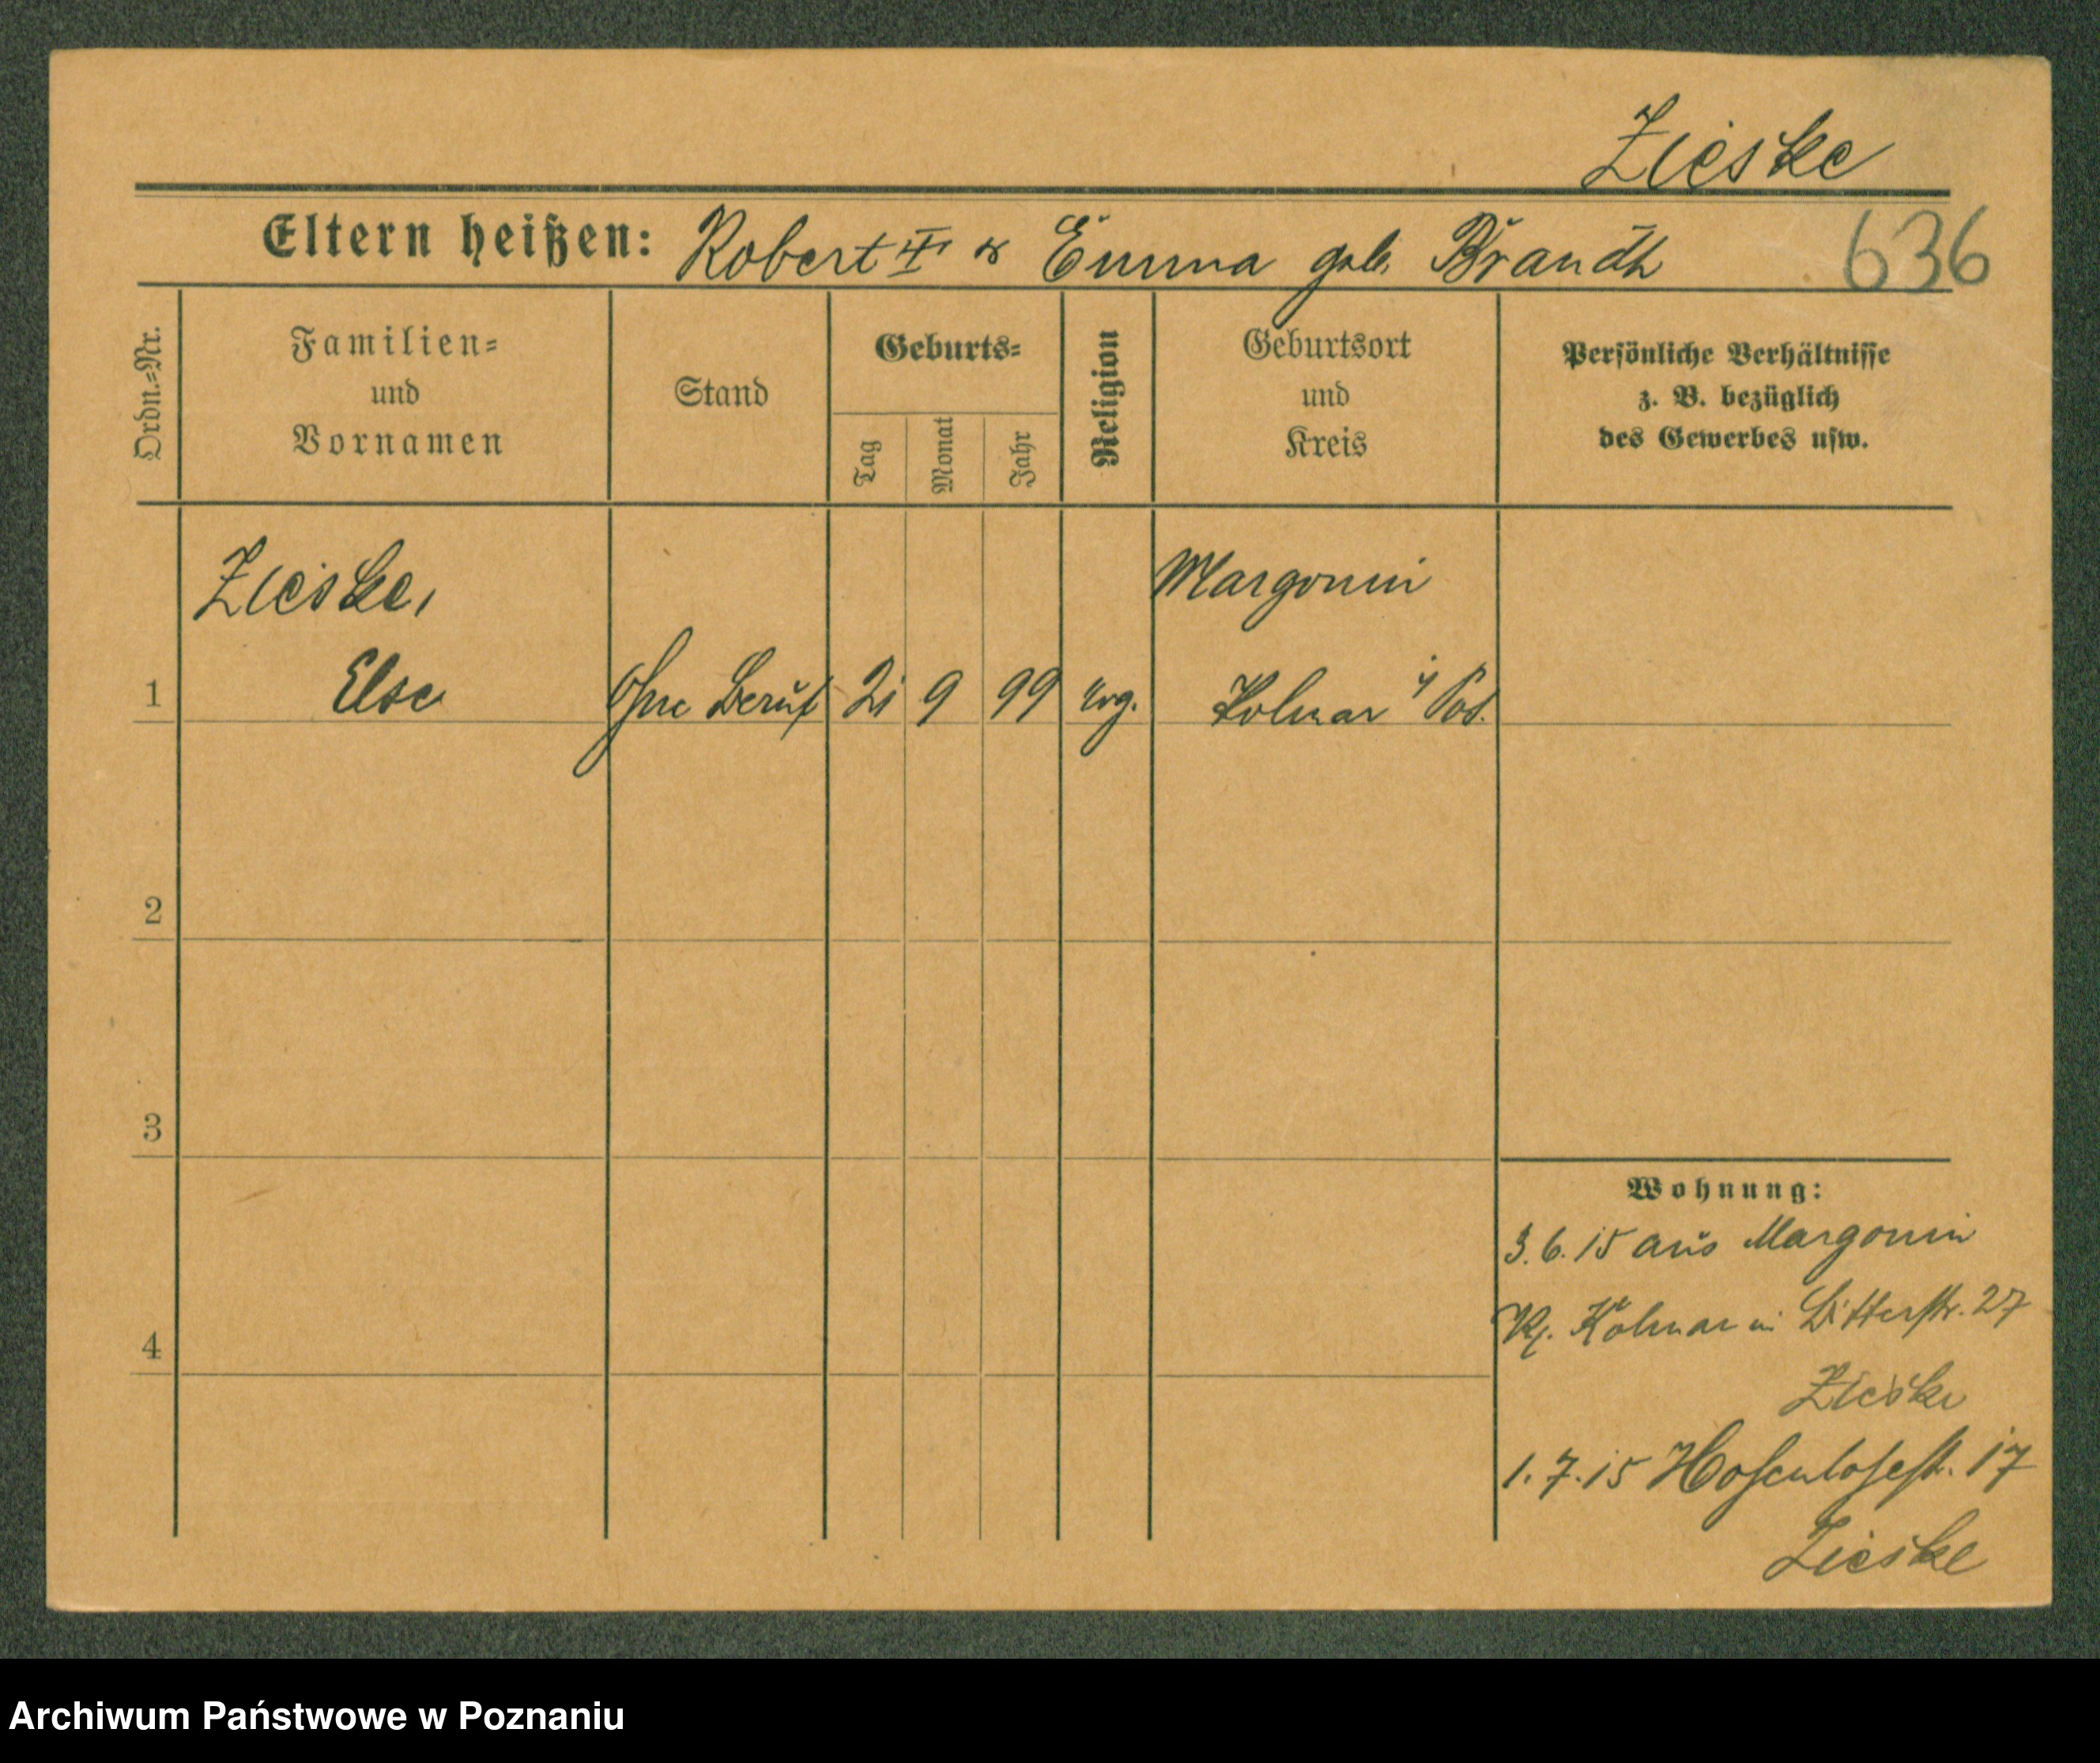 Zieske
Eltern heißen: Robert III & Emma geb. Brandt
636
Ordn.-Nr.
Familien-
und
Vornamen
Stand
Geburts-
Tag
Monat
Jahr
Religion
Geburtsort
und
Kreis
Persönliche Verhältnisse
z. B. bezüglich
des Gewerbes usw.
Zieske,
Margonin
1 Else Ohne Beruf 21 9 99 evg. Kolmar i/Pos.
2
3
4
Wohnung:
3.6.15 aus Margonin
Kolmar in Ritterstr. 27
Zieske
1.7.15 17
Zieske
Archiwum Państwowe w Poznaniu